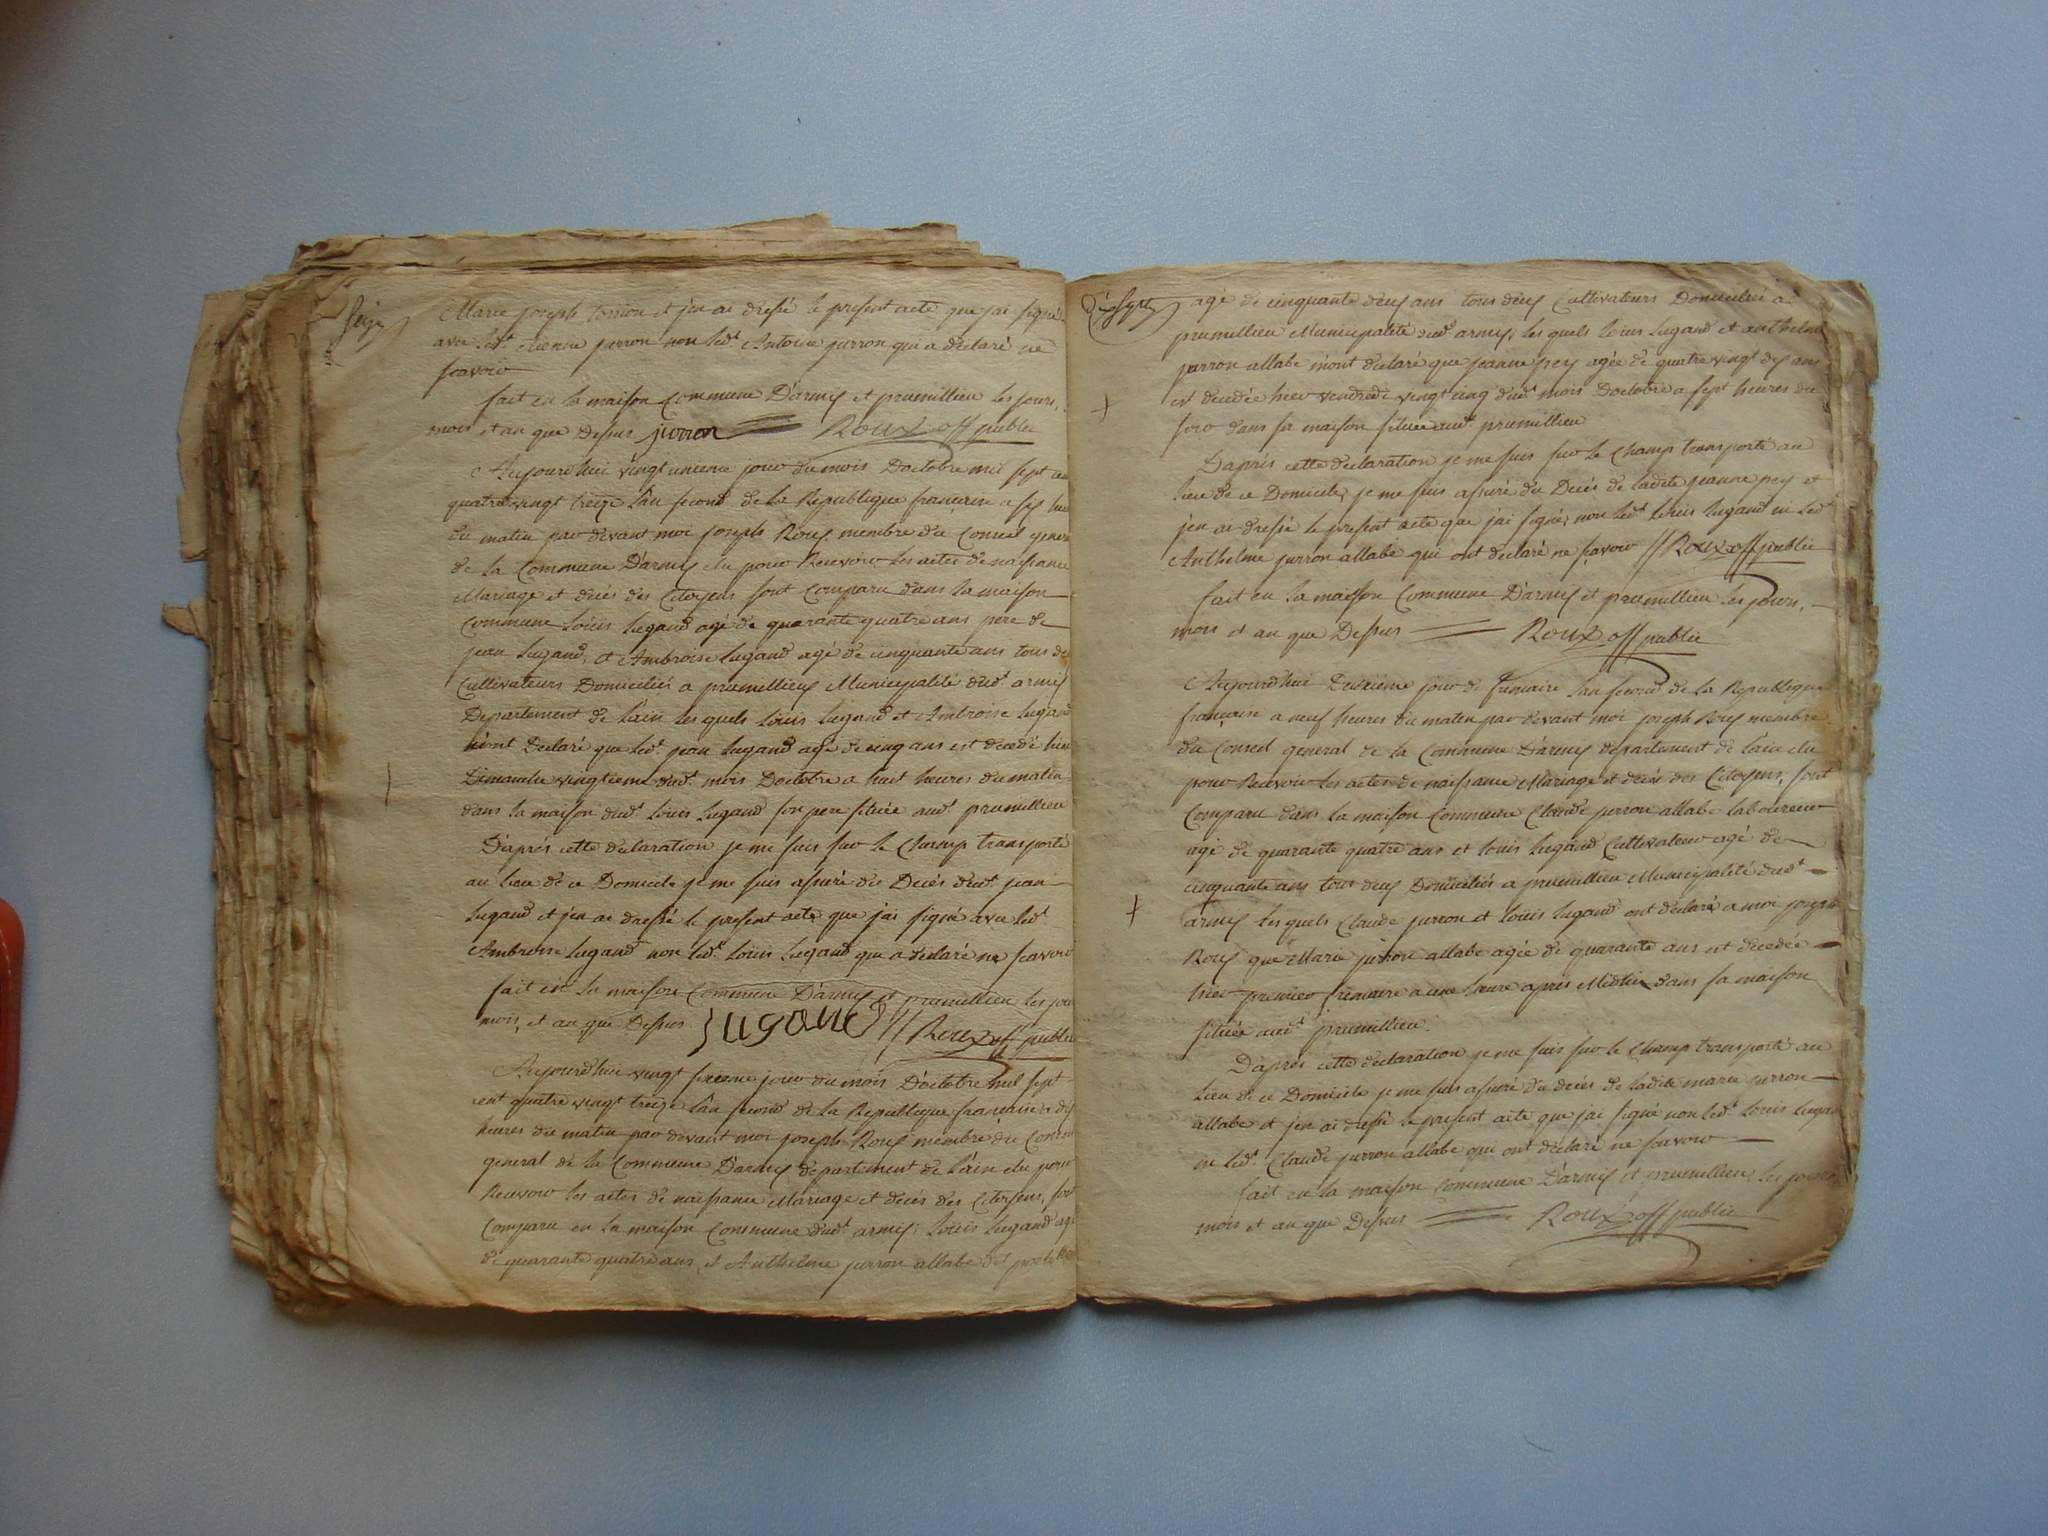 Seize
Marie joseph tonion et jen ai dressé le present acte que jai signé
avec led.t etienne jurron non led.t Antoine jurron qui a déclaré ne
scavoir
fait en la maison Commune D'armix et premillieu les jours,
mois et an que Dessus jurron Roux off publie
Aujourd'hui vingt unieme jour du mois Doctobre mil sept cen
quatre vingt treize l'an second de la Republique francaise a six heu
du matin par devant moi joseph Roux membre du Conseil gener
de la Commune D'armix elu pour Recevoir les actes de naissance
Mariage et décés des Citoyens sont Comparu dans la maison
Commune Loüis Lugand agé de quarante quatre ans pere de
jean Lugand, et Ambroise Lugand agé de cinquante ans tous de
Cultivateurs Domiciliés a premillieux Municipalité dud.t armix
Departement de Lain les quels Loüis Lugand et Ambroise Lugand
m'ont Declaré que led.t jean Lugand agé de cinq ans est décédé hier
Dimanche vingtieme dud.t mois Doctobre a huit heures du matin
dans la maison dud.t Loüis Lugand son pere située aud.t premillieu
D'après cette declaration je me suis sur le Champ transporté
au lieu de ce Domicile je me suis assuré du Décés dud.t jean
Lugand et jen ai dressé le present acte que j'ai signé avec led.t
Ambroise Lugand non led.t Loüis Lugand qui a déclaré ne scavoir
fait en la maison Commune D'armix et premillieu les jou
mois, et an que Dessus Lugand Roux off publie
Aujourd'hui vingt sixieme jour du mois D'octobre mil sept
cent quatre vingt treize l'an second de la Republique francaise a dix
heures du matin par devant moi joseph Roux membre du Conseil
general de la Commune D'armix departement de Lain elu pour
Recevoir les actes de naissance Mariage et décés des Citoyens, son
Comparu en la maison Commune dud.t armix; Loüis Lugand agé
de quarante quatre ans, et Anthelme jurron allabe dit
Dixsept
agé de cinquante deux ans tous deux Cultivateurs Domiciliés a
premillieu Municipalité dud.t armix, les quels loius Lugand et anthelm
jurron allabe m'ont déclaré que jeanne prey agée de quatre vingt dix ans
est decedée hier vendredi vingt cinq dud.t mois Doctobre a sept heures du
soir dans sa maison située aud.t premillieu
D'après cette declaration je me suis sur le Champ transporté au
lieu de ce Domicile, je me suis assuré du Décés de ladite jeanne prey et
j'en ai dressé le present acte que j'ai signé, non led.t Louis Lugand ni led.t
Anthelme jurron allabe qui ont déclaré ne scavoir Roux off publie
fait en la maison Commune D'armix et premillieu les jours,
mois et an que Dessus Roux off publie
Aujourd'hui Deuxieme jour de frimaire lan second de la Republique
francaise a neuf heures du matin par devant moi joseph Roux membre
du Conseil general de la Commune D'armix departement de Lain elu
pour Recevoir les actes de naissance Mariage et décés des Citoyens, sont
Comparu dans la maison Commune Claude jurron allabe laboureur
agé de quarante quatre ans et loüis Lugand Cultivateur agé de
cinquante ans tous deux Domiciliés a premillieu Municipalité dud.t
armix les quels Claude jurron et loüis Lugand ont déclaré a moi joseph
Roux que Marie jurron allabe agée de quarante ans est décedée
hier premier frimaire a une heure après Midi dans sa maison
située aud.t premillieu.
D'apres cette declaration je me suis sur le Champ transporté au
Lieu de ce Domicile je me suis assuré du décés de ladite marie jurron
allabe et j'en ai dressé le present acte que jai signé non led.t Louis Lugan
ni led.t Claude jurron allabe qui ont déclaré ne scavoir
fait en la maison Commune D'armix et premillieu, les jours,
mois et an que Dessus Roux off publie